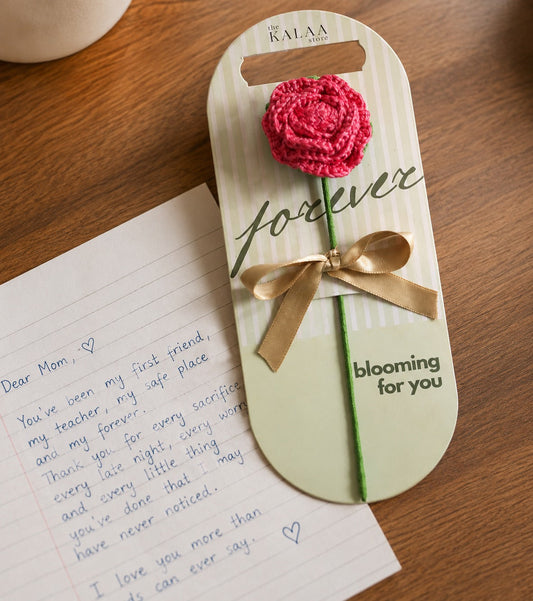 the
KALAA
store
forever
blooming
for you
Dear Mom, ♡
You've been my first friend,
my teacher, my safe place
and my forever.
Thank you for every sacrifice
every late night, every worry
and every little thing
you've done that I may
have never noticed.
I love you more than
can ever say. ♡